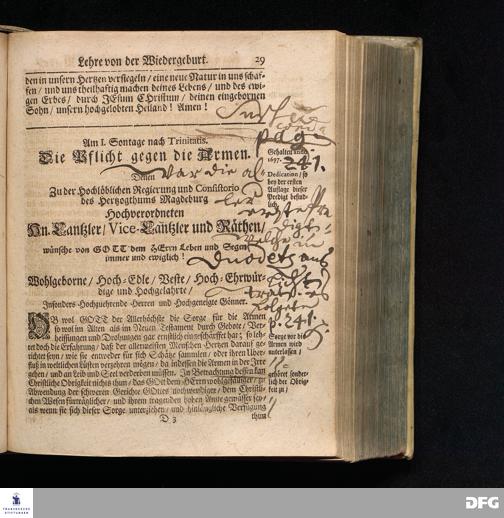 Lehre von der Wiedergeburt. 29
den in unsern Hertzen versiegeln / eine neue Natur in uns schaf-
fen / und uns theilhaftig machen deines Lebens / und des ewi-
gen Erbes / durch JEsum CHristum / deinen eingebornen
Sohn / unsern hochgelobten Heiland! Amen!
Am I. Sontage nach Trinitatis.
Die Pflicht gegen die Armen.
pag
241.
Gehalten anno
1697.
war die al-
Denen
Zu der Hochlöblichen Regierung und Consistorio
des Herzogthums Magdeburg
Hochverordneten
Hn. Cantzler / Vice-Cantzler und Räthen /
wünsche von GOTT dem HErrn Leben und Segen
immer und ewiglich!
Dedication / so
bey der ersten
Auflage dieser
Predigt befind-
lich.
Wohlgeborne / Hoch-Edle / Veste / Hoch-Ehrwür-
dige und Hochgelahrte /
Insonders-Hochzuehrende Herren und Hochgeneigte Gönner.
OB wol GOTT der Allerhöchste die Sorge für die Armen
so wol im Alten als im Neuen Testament durch Gebote / Ver-
heissungen und Drohungen gar ernstlich eingeschärffet hat; so leh-
ret doch die Erfahrung / daß der allermeisten Menschen Hertzen darauf ge-
richtet seyn / wie sie entweder für sich Schätze sammlen / oder ihren Uber-
fluß in weltlichen Lüsten verzehren mögen / da indessen die Armen in der Irre
gehen / und an Leib und Seel verderben müssen. In Betrachtung dessen kan
Christliche Obrigkeit nichts thun / das GOtt dem HErrn wohlgefälliger / zu
Abwendung der schweren Gerichte GOttes nothwendiger / dem Christli-
chen Wesen fürträglicher / und ihrem tragenden hohen Amte gemässer sey /
als wenn sie sich dieser Sorge unterziehen / und hinlängliche Verfügung
D 3 thun
p. 241.
Sorge vor die
Armen wird
unterlassen /
gehöret sonder-
lich der Obrig-
keit zu /
FRANCKESCHE
STIFTUNGEN
DFG